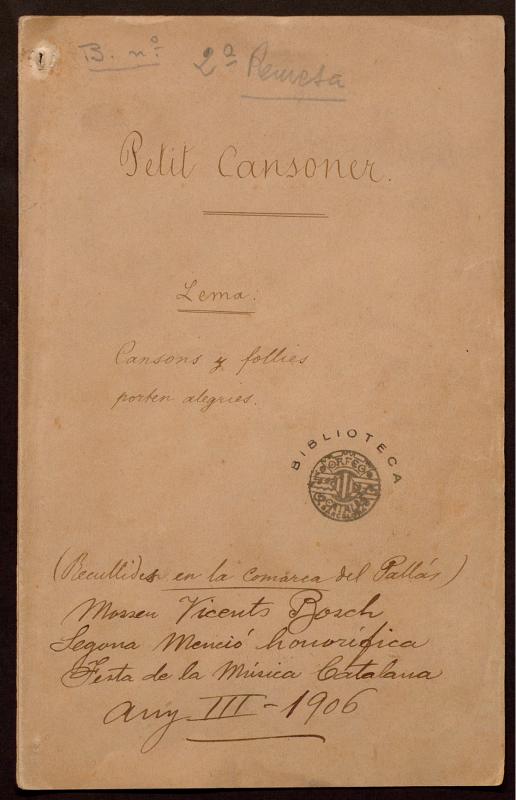 1
B. nº 2ª Remesa
Petit Cansoner.
Lema:
Cansons y follies
porten alegries.
BIBLIOTECA
ORFEÓ CATALÀ
(Recullides en la comarca del Pallás)
Mossen Vicents Bosch
Segona Menció honorífica
Festa de la Música Catalana
Any III - 1906